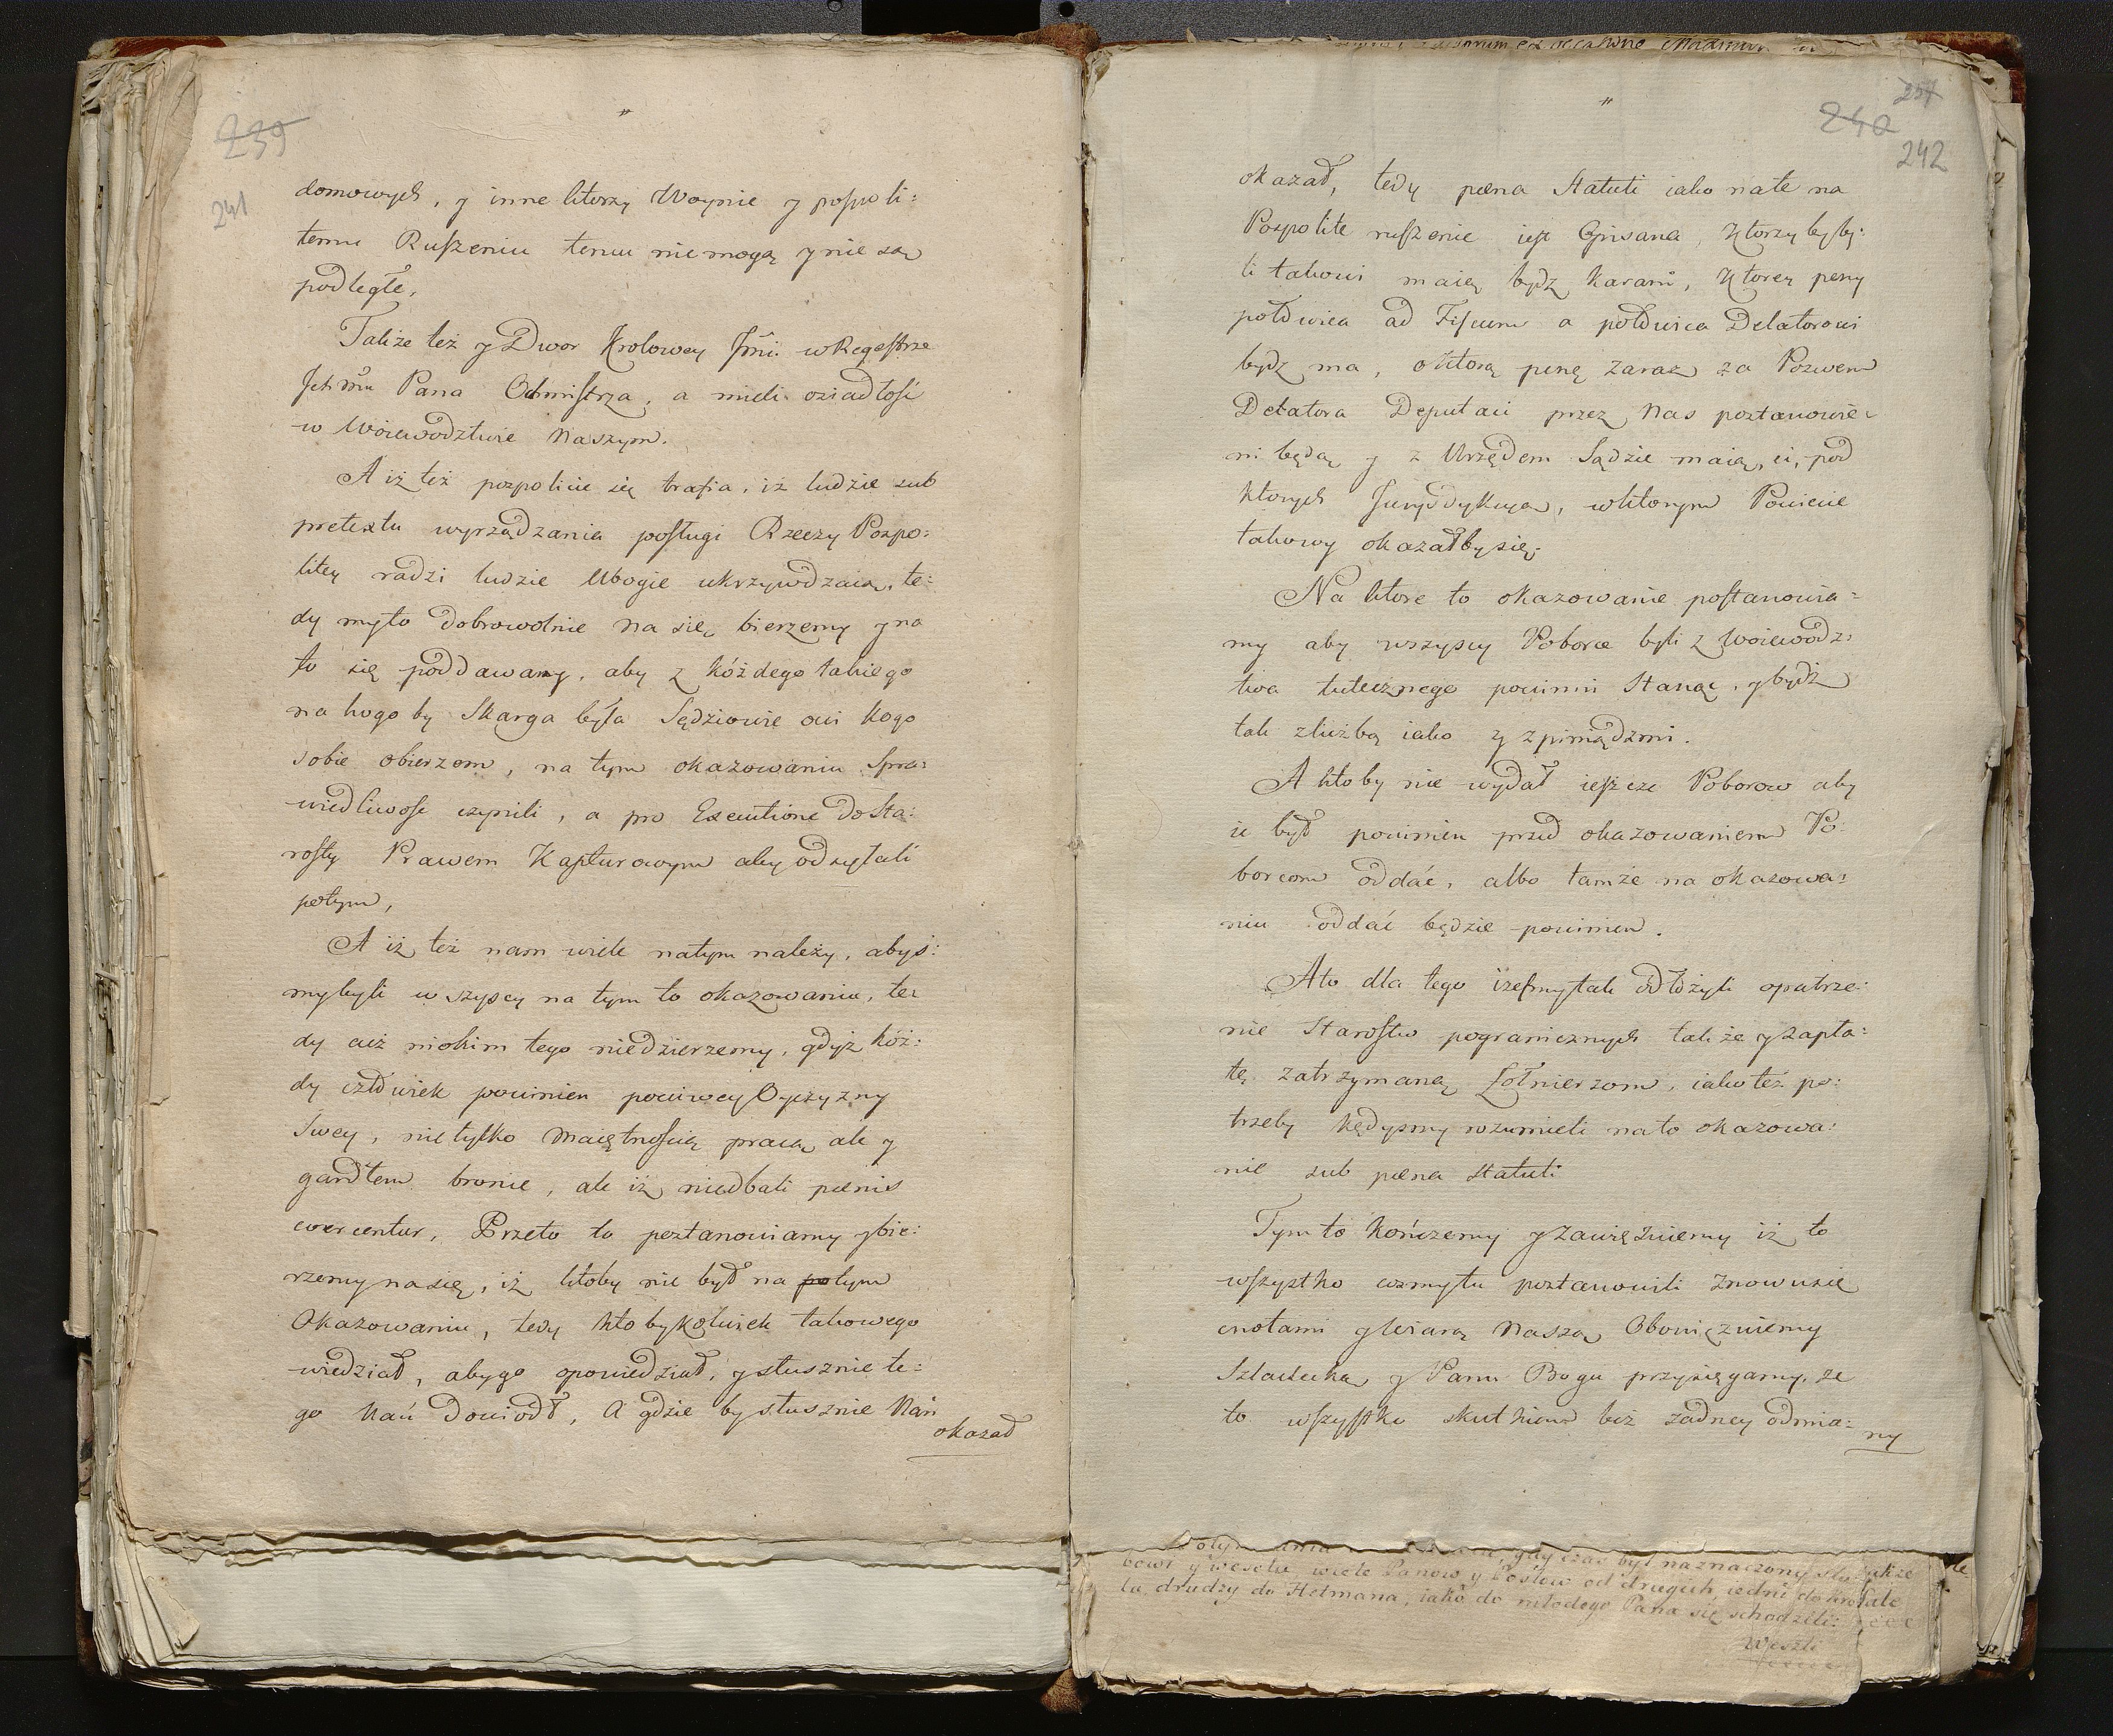 239
241
domowych, y inne ktorzy Woynie y pospoli:
temu Ruszeniu temu nie mogą y nie są
podległe,
Także też y Dwor Krolowey Jmci w Regestrze
Jch Pana Ochmistrza, a mieli osiadłość
w Woiewodztwie Naszym.
A iż też pospolicie się trafia, iż ludzie sub
pretextu wyrządzania posługi Rzeczy Pospo:
litey radzi ludzie Ubogie ukrzywdzaią, te:
dy myto dobrowolnie na się bierzemy y na
to się poddawamy, aby z kóżdego takiego
na kogo by Skarga była Sędziowie ci kogo
sobie obierzem, na tym okazowaniu Spra:
wiedliwosc czynili, a pro Executione do Sta:
rosty Prawem Kapturowym aby odsyłali
potym,
A iż też nam wiele natym należy, abyś:
mybyli wszyscy na tym to okazowaniu, te:
dy aż niokim tego niedzierzemy, gdyż kóż:
dy człowiek powinien poczciwey Oyczyzny
Swey, nie tylko Maiętnością pracą ale y
gardłem bronic, ale iż niedbali pœnis
coercentur, Przeto to postanowiamy y bie:
rzemy na się, iż ktoby nie był na po tym
Okazowaniu, tedy kto bykolwiek takowego
wiedział, aby go opowiedział, y słusznie te:
go Nań Dowiódł, A gdzie by słusznie Nań
okazał
257
240
242
okazał, tedy pœna Statuti iako na te na
Pospolite ruszenie iest Opisana, Ktorzy by by:
li takowi maią bydz Karani, Ktorey peny
połowica ad Fiscum a połowica Delatorowi
bydz ma, o Ktorą penę zaraz za Pozwem
Delatora Deputaci przez Nas postanowie:
ni będą y z Urzędem Sądzic maią, ci, pod
ktorych Jurysdykcyą, w ktorym Powiecie
takowy okazałby się.
Na ktore to okazowanie postanowia:
my aby wszyscy Poborce byli z Woiewodz:
twa tutecznego powinni Stanąć, y bydź
tak z liczbą iako y z pieniądzmi.
A ktoby nie wydał ieszcze Poborow aby
ie był powinien przed okazowaniem Po:
borcom oddać, albo tamże na okazowa:
niu oddać będzie powinien.
A to dla tego iżesmy tak odłożyli opatrze:
nie Starostw pogranicznych także y zapła:
tę zatrzymaną Żołnierzom, iako też po:
trzeby kędysmy rozumieli na to okazowa:
nie sub pœna statuti
Tym to kończemy y zawięzuiemy iż to
wszystko cosmy tu postanowili znowu się
cnotami y wiarą Naszą Obowięzuiemy
Szlachecką y Panu Bogu przysięgamy, że
to wszystko skutkiem bez żadney odmia:
ny
gdy czas był naznaczony
bowi y weselu, wiele Panow y Posłow od drugich iedni do Krola
la, drudzy do Hetmana, iako do młodego Pana się schodzili:
Weszli